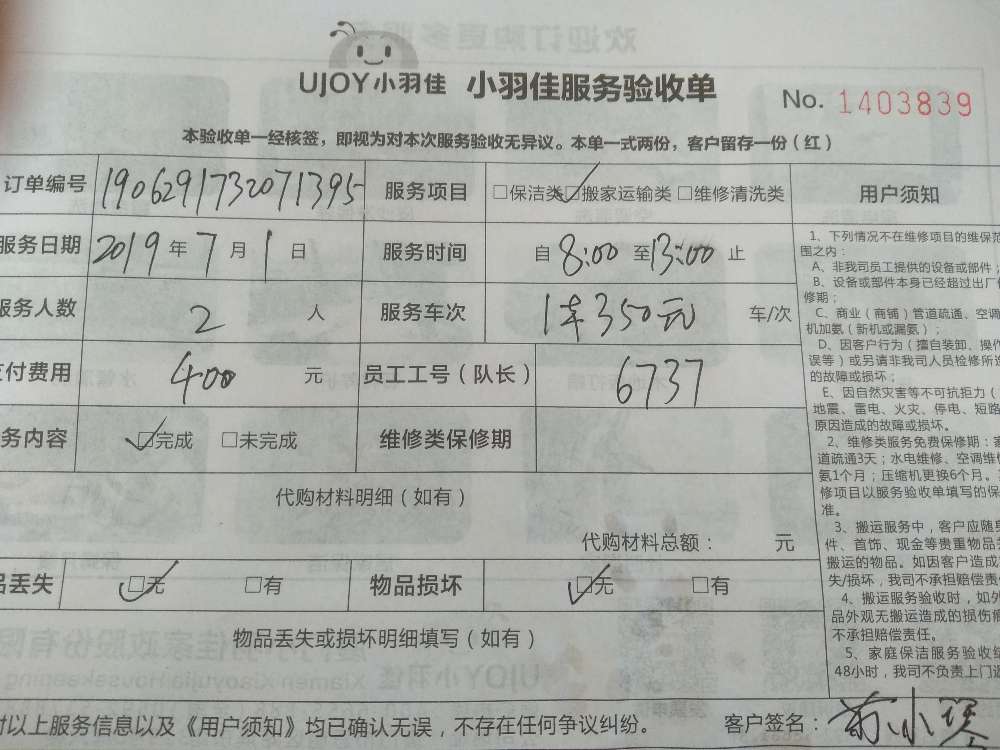 UJOY小羽佳 小羽佳服务验收单 No. 1403839
本验收单一经核签，即视为对本次服务验收无异议。本单一式两份，客户留存一份（红）
订单编号 1906291732071395 服务项目 □保洁类 ☑搬家运输类 □维修清洗类 用户须知
服务日期 2019年7月1日 服务时间 自8:00至13:00止
服务人数 2人 服务车次 1车350元 车/次
付费用 400元 员工工号（队长） 6737
务内容 ☑完成 □未完成 维修类保修期
代购材料明细（如有）
代购材料总额： 元
品丢失 ☑无 □有 物品损坏 ☑无 □有
物品丢失或损坏明细填写（如有）
对以上服务信息以及《用户须知》均已确认无误，不存在任何争议纠纷。 客户签名：
1、下列情况不在维修项目的维保范
围之内：
A、非我司员工提供的设备或部件；
B、设备或部件本身已经超过出厂
修期；
C、商业（商铺）管道疏通、空调
机加氨（新机或漏氨）；
D、因客户行为（擅自装卸、操作
误等）或另请非我司人员检修所造
的故障或损坏；
E、因自然灾害等不可抗拒力（
地震、雷电、火灾、停电、短路
原因造成的故障或损坏。
2、维修类服务免费保修期：家
道疏通3天；水电维修、空调维修
氨1个月；压缩机更换6个月。
修项目以服务验收单填写的保
准。
3、搬运服务中，客户应随
件、首饰、现金等贵重物品
搬运的物品。如因客户造成
失/损坏，我司不承担赔偿责
4、搬运服务验收时，如外
品外观无搬运造成的损伤痕
不承担赔偿责任。
5、家庭保洁服务验收结
48小时，我司不负责上门返